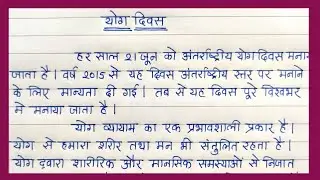 योग दिवस
हर साल 21 जून को अंतर्राष्ट्रीय योग दिवस मनाया
जाता है। वर्ष 2015 से यह दिवस अंतर्राष्ट्रीय स्तर पर मनाने
के लिए मान्यता दी गई। तब से यह दिवस पूरे विश्वभर
में मनाया जाता है।
योग व्यायाम का एक प्रभावशाली प्रकार है।
योग से हमारा शरीर तथा मन भी संतुलित रहता है।
योग द्वारा शारीरिक और मानसिक समस्याओं से निजात